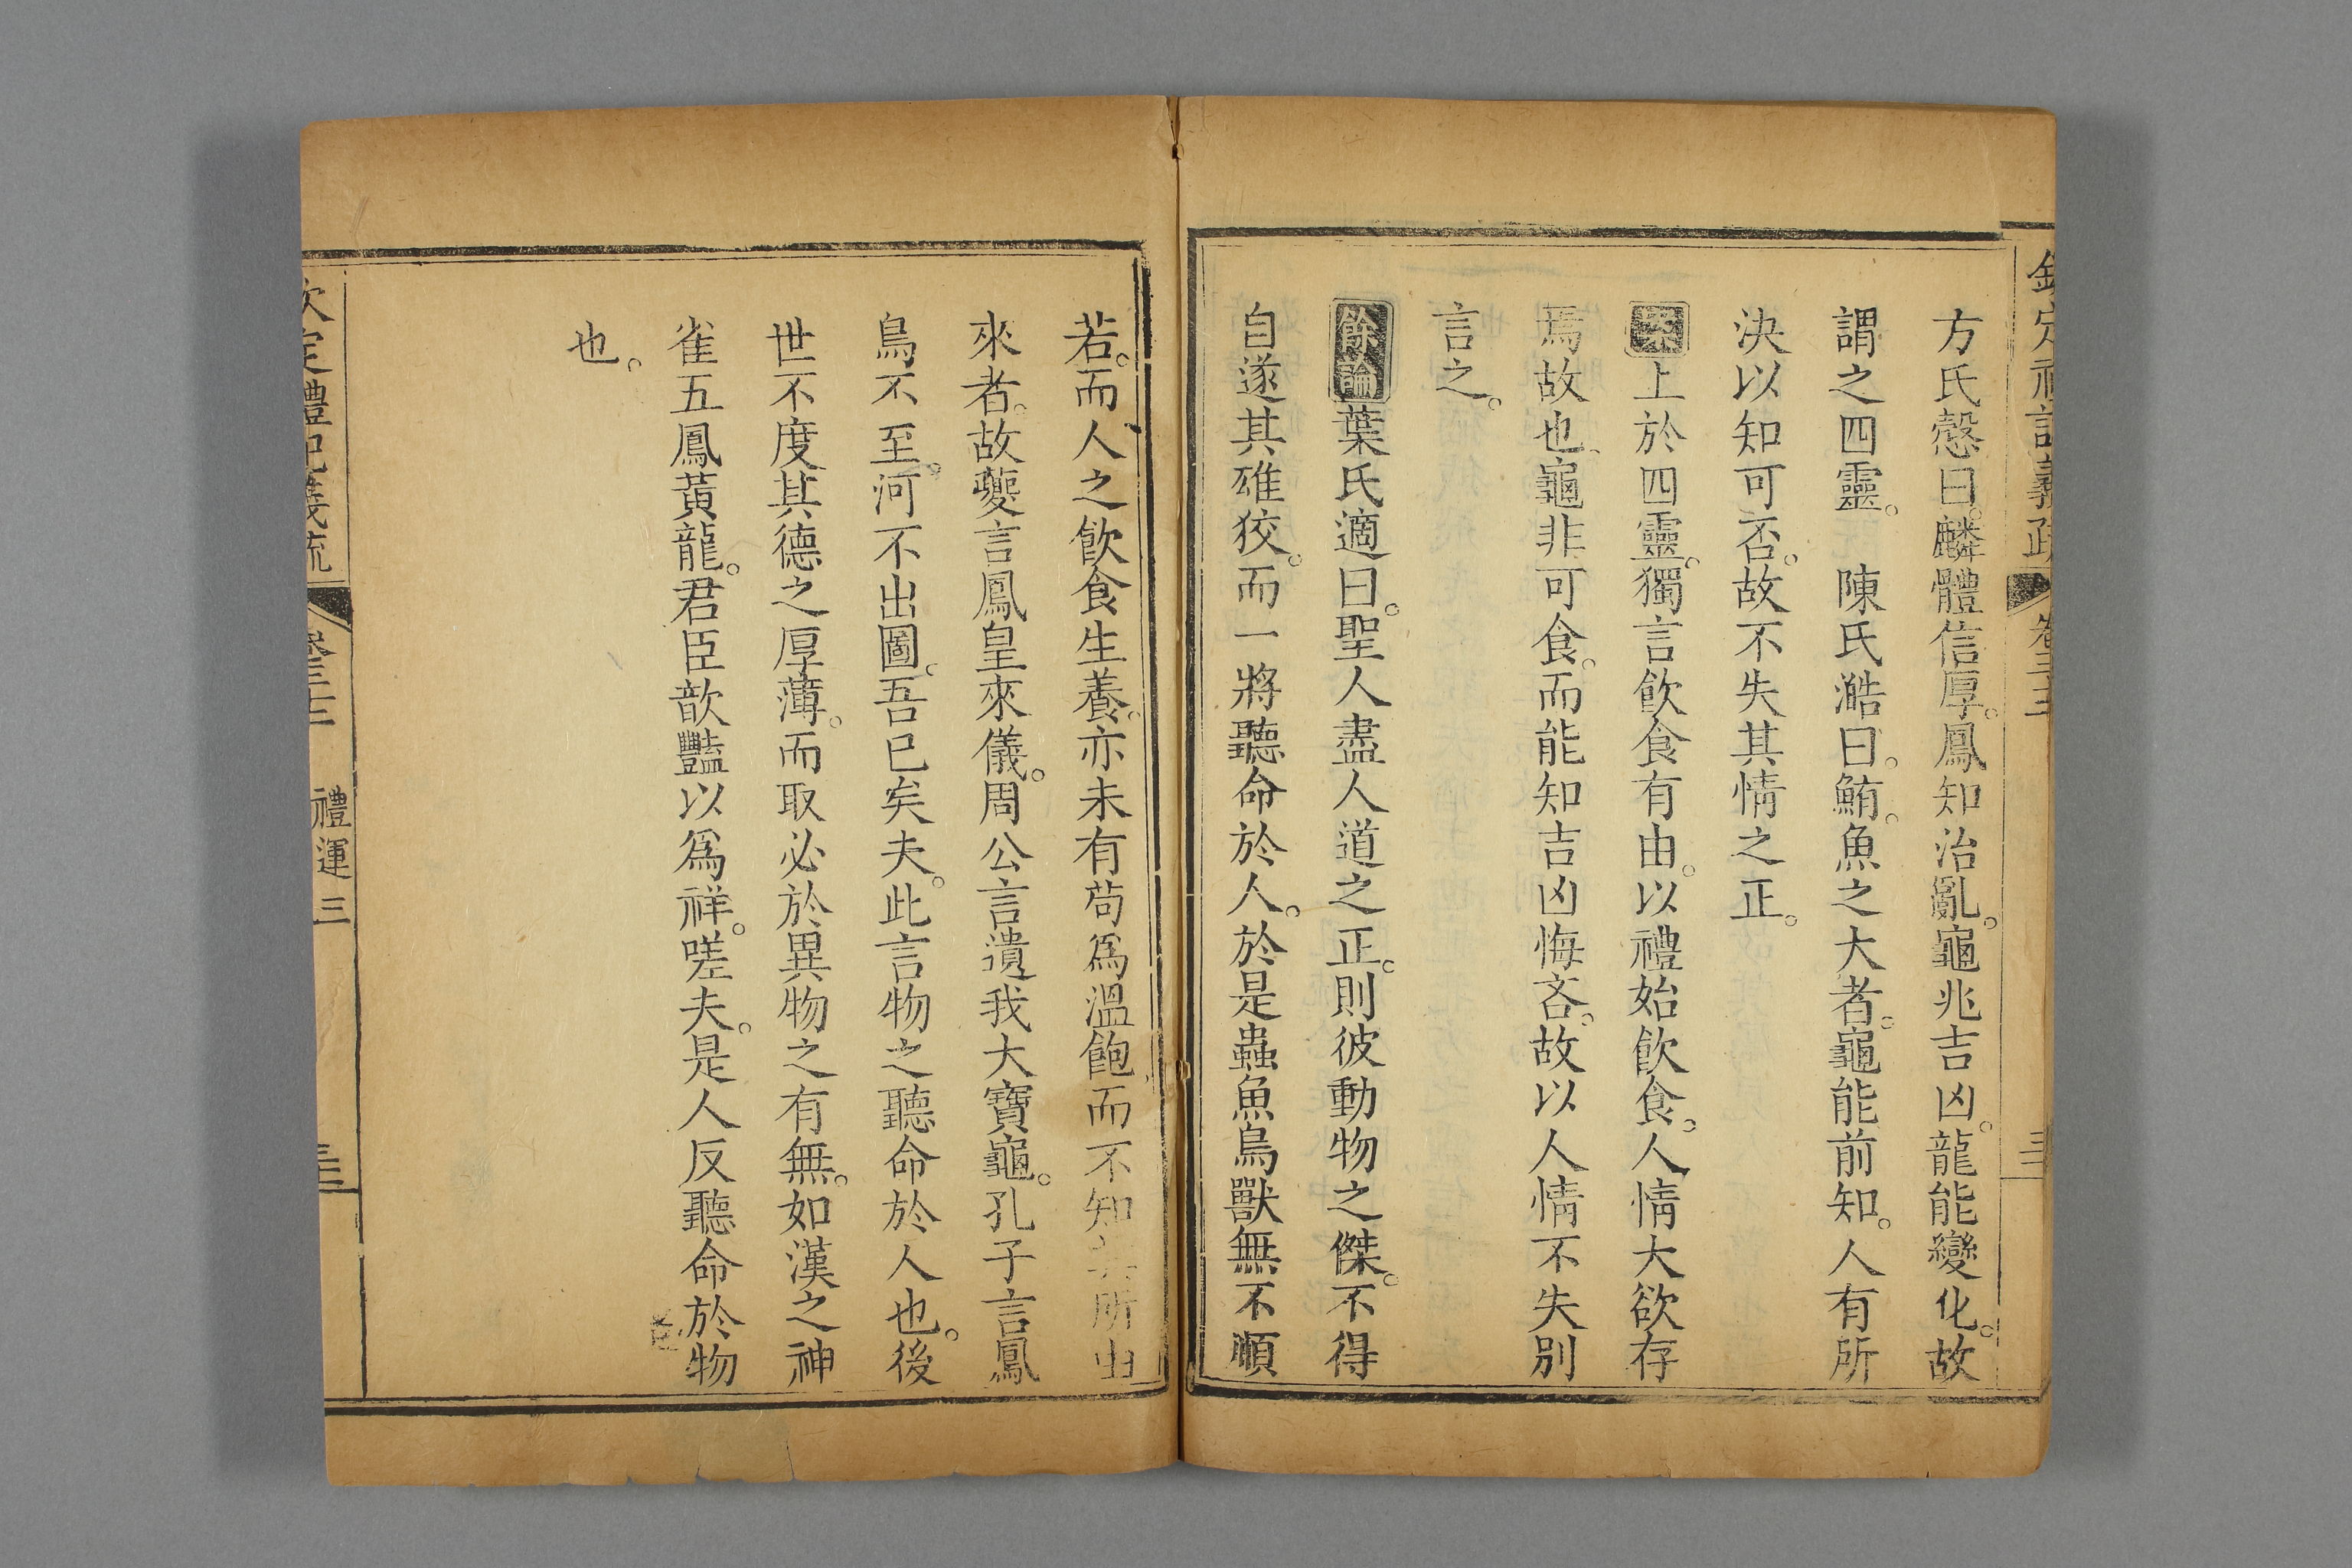 欽定禮記義疏 卷三十三
方氏慤曰。麟體信厚。鳳知治亂。龜兆吉凶。龍能變化。故
謂之四靈。 陳氏澔曰。鮪。魚之大者。龜能前知。人有所
決以知可否。故不失其情之正。
案上於四靈。獨言飲食有由。以禮始飲食。人情大欲存
焉故也。龜非可食。而能知吉凶悔吝。故以人情不失別
言之。
餘論葉氏適曰。聖人盡人道之正。則彼動物之傑。不得
自遂其雄狡。而一將聽命於人。於是蟲魚鳥獸無不順
若。而人之飲食生養。亦未有苟爲溫飽而不知其所由
來者。故夔言鳳皇來儀。周公言遺我大寶龜。孔子言鳳
鳥不至。河不出圖。吾已矣夫。此言物之聽命於人也。後
世不度其德之厚薄。而取必於異物之有無。如漢之神
雀五鳳黃龍。君臣歆豔以爲祥。嗟夫。是人反聽命於物
也。
欽定禮記義疏 卷三十三 禮運三